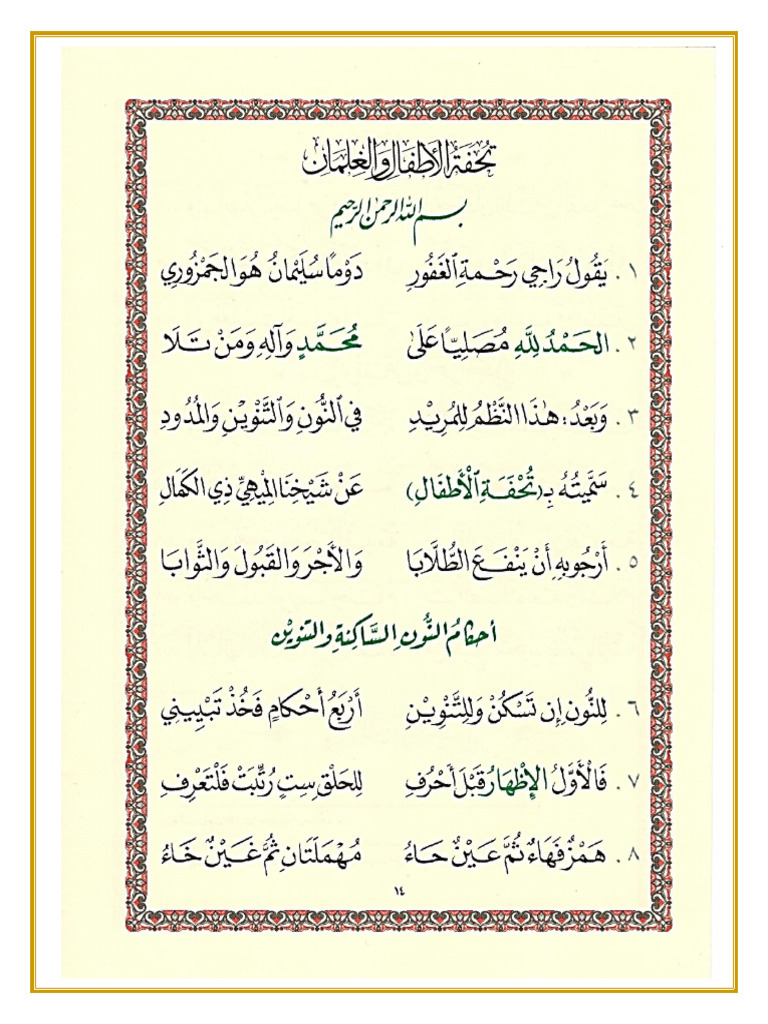 تُحْفَةُ الأَطْفَالِ وَالْغِلْمَانِ
بسم الله الرحمن الرحيم
١. يَقُولُ رَاجِي رَحْمَةِ الْغَفُورِ دَوْمًا سُلَيْمَانُ هُوَ الجَمْزُورِي
٢. الحَمْدُ لِلَّهِ مُصَلِّيًا عَلَىٰ مُحَمَّدٍ وَآلِهِ وَمَنْ تَلَا
٣. وَبَعْدُ: هٰذَا النَّظْمُ لِلْمُرِيْدِ فِي النُّونِ وَالتَّنْوِيْنِ وَالمُدُودِ
٤. سَمَّيتُهُ بِـ(تُحْفَةِ الْأَطْفَالِ) عَنْ شَيْخِنَا المِيْهِيِّ ذِي الكَمَالِ
٥. أَرْجُو بِهِ أَنْ يَنْفَعَ الطُّلَّابَا وَالأَجْرَ وَالقَبُولَ وَالثَّوابَا
أحكامُ النُّونِ السَّاكِنةِ والتنوين
٦. لِلنُّونِ إِن تَسْكُنْ وَلِلتَّنْوِيْنِ أَرْبَعُ أَحْكَامٍ فَخُذْ تَبْيِيني
٧. فَالْأَوَّلُ الإِظْهَارُ قَبْلَ أَحْرُفِ لِلحَلْقِ سِتٍ رُتِّبَتْ فَلْتَعْرِفِ
٨. هَمْزٌ فَهَاءٌ ثُمَّ عَيْنٌ حَاءُ مُهْمَلَتَانِ ثُمَّ غَيْنٌ خَاءُ
١٤